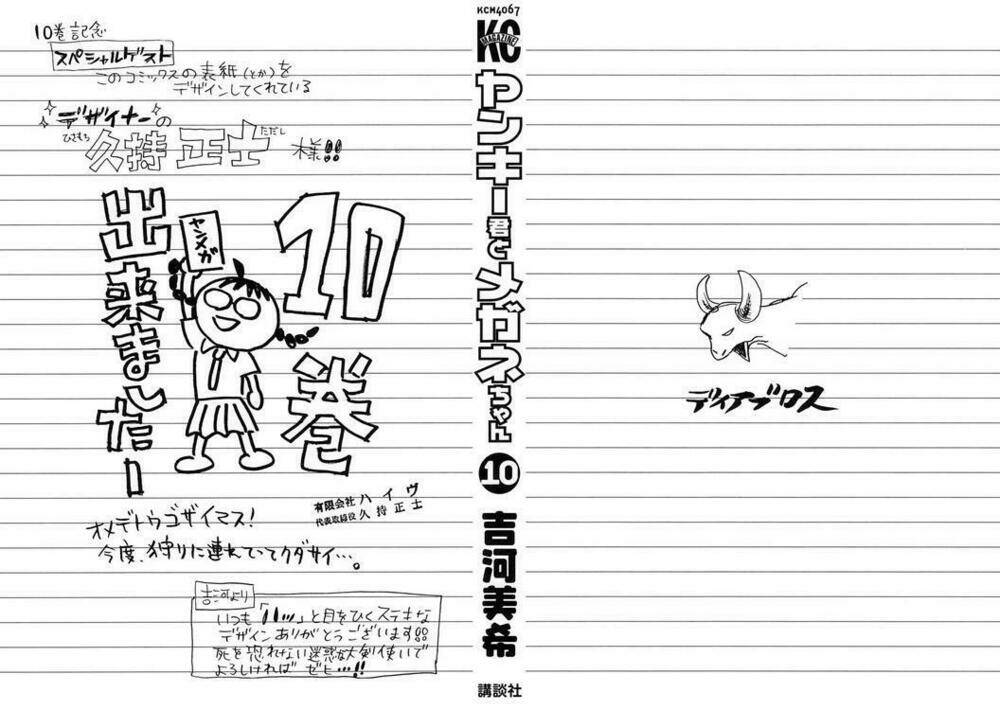 10巻記念
スペシャルゲスト
このコミックスの表紙(とか)を
デザインしてくれている
デザイナーの
ひさもち ただし
久持 正士 様!!
10巻
出来ましたー
ヤンメガ
有限会社 ハイヴ
代表取締役 久持正士
オメデトウゴザイマス!
今度、狩りに連れていてクダサイ…。
吉河より
いつも「ハッ」と目をひくステキな
デザインありがとうございます!!
死を恐れない迷惑な大剣使いで
よろしければ ゼヒ…!!
KCM4067
KC
MAGAZINE
ヤンキー君とメガネちゃん
10
吉河美希
講談社
ディアブロス